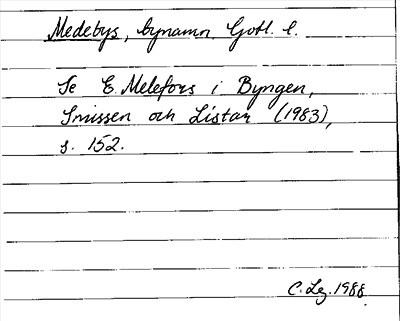 Medebys, bynamn. Gotl. l.
Se E. Melefors i Byngen,
Smissen och Listar (1983),
s. 152.
C. Lg. 1988.